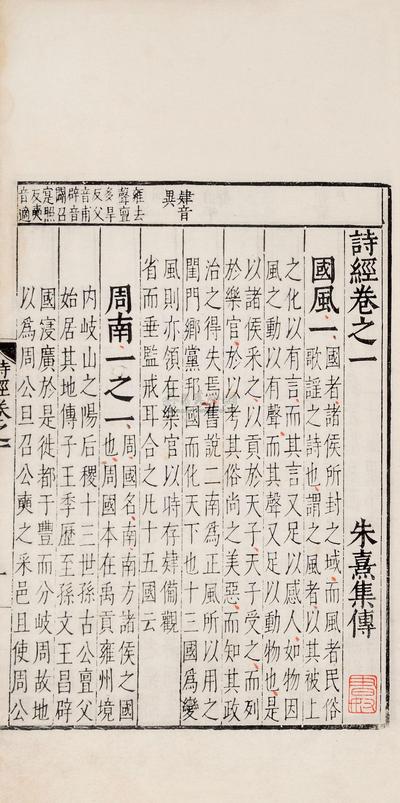 詩經卷之一 朱熹集傳
國風一 國者諸侯所封之域而風者民俗
歌謠之詩也謂之風者以其被上
之化以有言而其言又足以感人如物因
風之動以有聲而其聲又足以動物也是
以諸侯采之以貢於天子天子受之而列
於樂官於以考其俗尚之美惡而知其政
治之得失焉舊說二南為正風所以用之
閨門鄉黨邦國而化天下也十三國為變
風則亦領在樂官以時存肄備觀
省而垂監戒耳合之凡十五國云
周南一之一 周國名南南方諸侯之國
也周國本在禹貢雍州境
內岐山之陽后稷十三世孫古公亶父
始居其地傳子王季歷至孫文王昌辟
國寖廣於是徙都于豐而分岐周故地
以為周公旦召公奭之采邑且使周公
肄音
異
雍去
聲亶
多旱
反父
音甫
辟音
闢召
寔照
反奭
音適
詩經卷之一